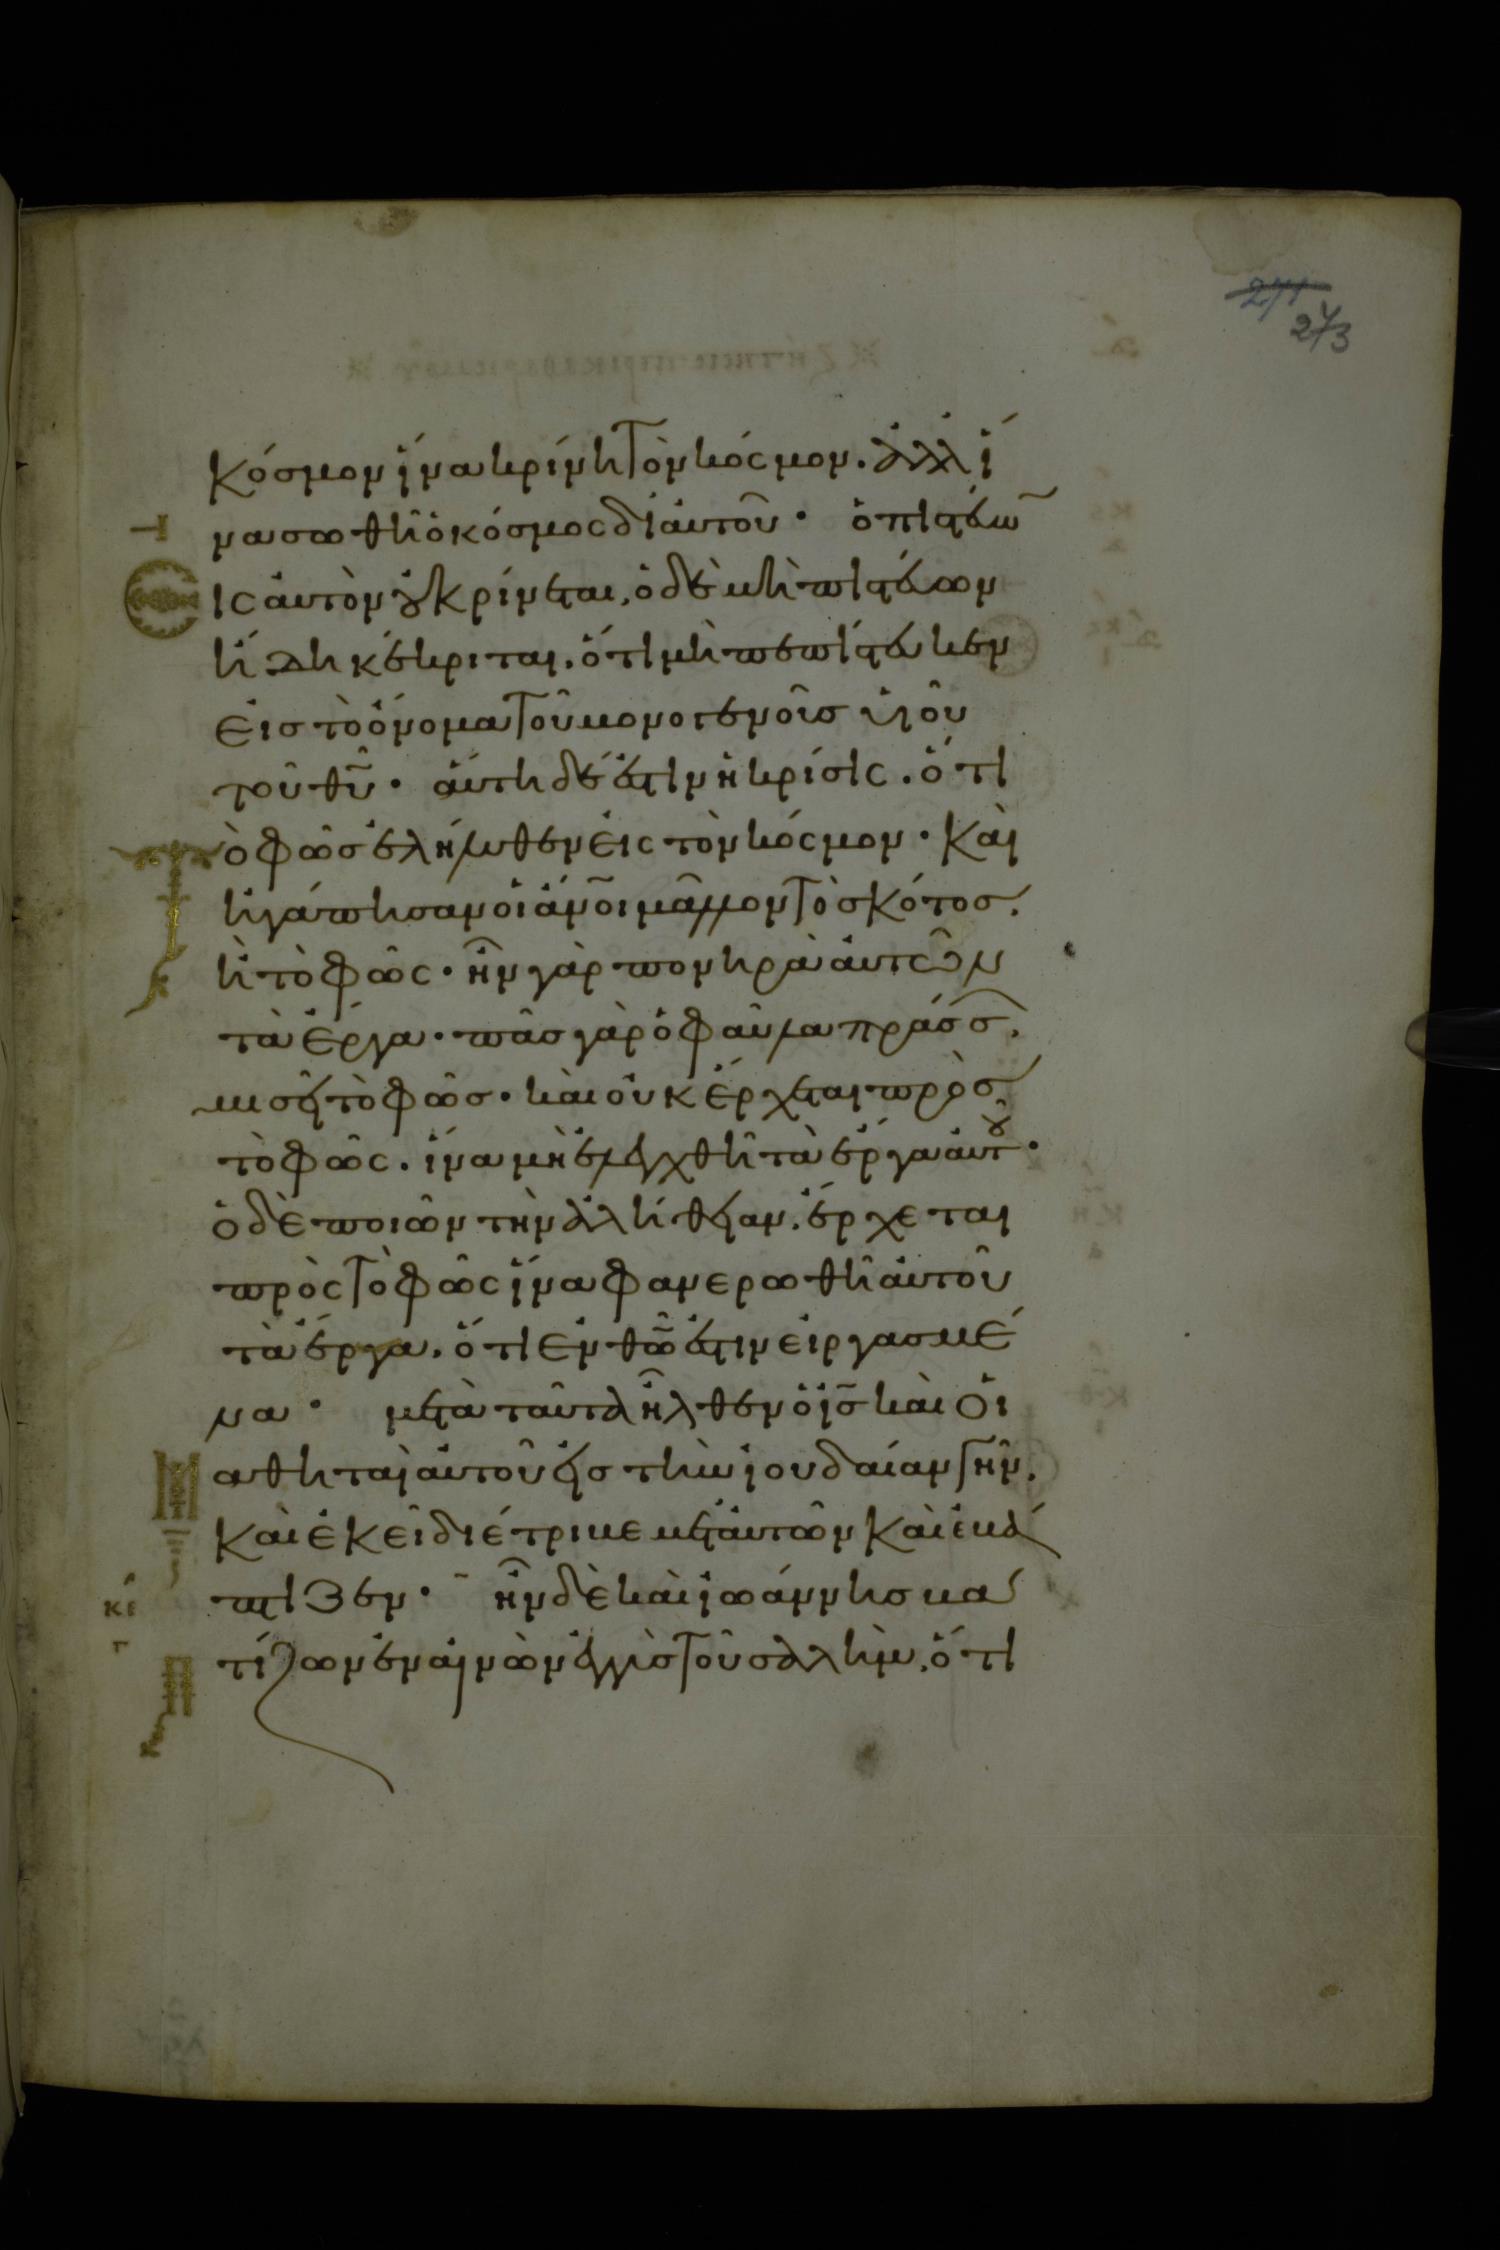 271
273
κόσμον ἵνα κρίνη τὸν κόσμον. ἀλλ ἵ
να σωθῆ ὁ κόσμος δι αὐτοῦ· ὁ πιστεύω̃
ις αὐτὸν οὐ κρίνεται. ὁ δὲ μὴ πιστεύων
ἤδη κέκριται. ὅτι μὴ πεπίστευκεν
εἰς τὸ ὄνομα τοῦ μονογενοῦς υἱοῦ
τοῦ θῦ· αὕτη δέ ἐστιν ἡ κρίσις. ὅτι
Τὸ φῶς ἐλήλυθεν εἰς τὸν κόσμον· καὶ
ἠγάπησαν οἱ ἄνοι μᾶλλον τὸ σκότος.
ἢ τὸ φῶς· ἦν γὰρ πονηρὰ αὐτῶν
τὰ ἔργα· πᾶς γὰρ ὁ φαῦλα πράσσ.
μισεῖ τὸ φῶς· καὶ οὐκ ἔρχεται πρὸς
τὸ φῶς. ἵνα μὴ ἐλεγχθῆ τὰ ἔργα αὐτοῦ·
ὁ δὲ ποιῶν τὴν ἀλήθειαν. ἔρχεται
πρὸς τὸ φῶς ἵνα φανερωθῆ αὐτοῦ
τὰ ἔργα. ὅτι ἐν θῶ ἐστιν εἰργασμέ
να· μετὰ ταῦτα ἦλθεν ὁ ις καὶ οἱ
Μαθηταὶ αὐτοῦ εἰς τὴν ἰουδαίαν γῆν.
καὶ ἐκεῖ διέτριβε μετ αὐτῶν καὶ ἐβά
πτιζεν· ἦν δὲ καὶ ἰωάννης βα
κε
γ
πτίζων ἐν αἰνὼν ἐγγὺς τοῦ σαλήμ. ὅτι